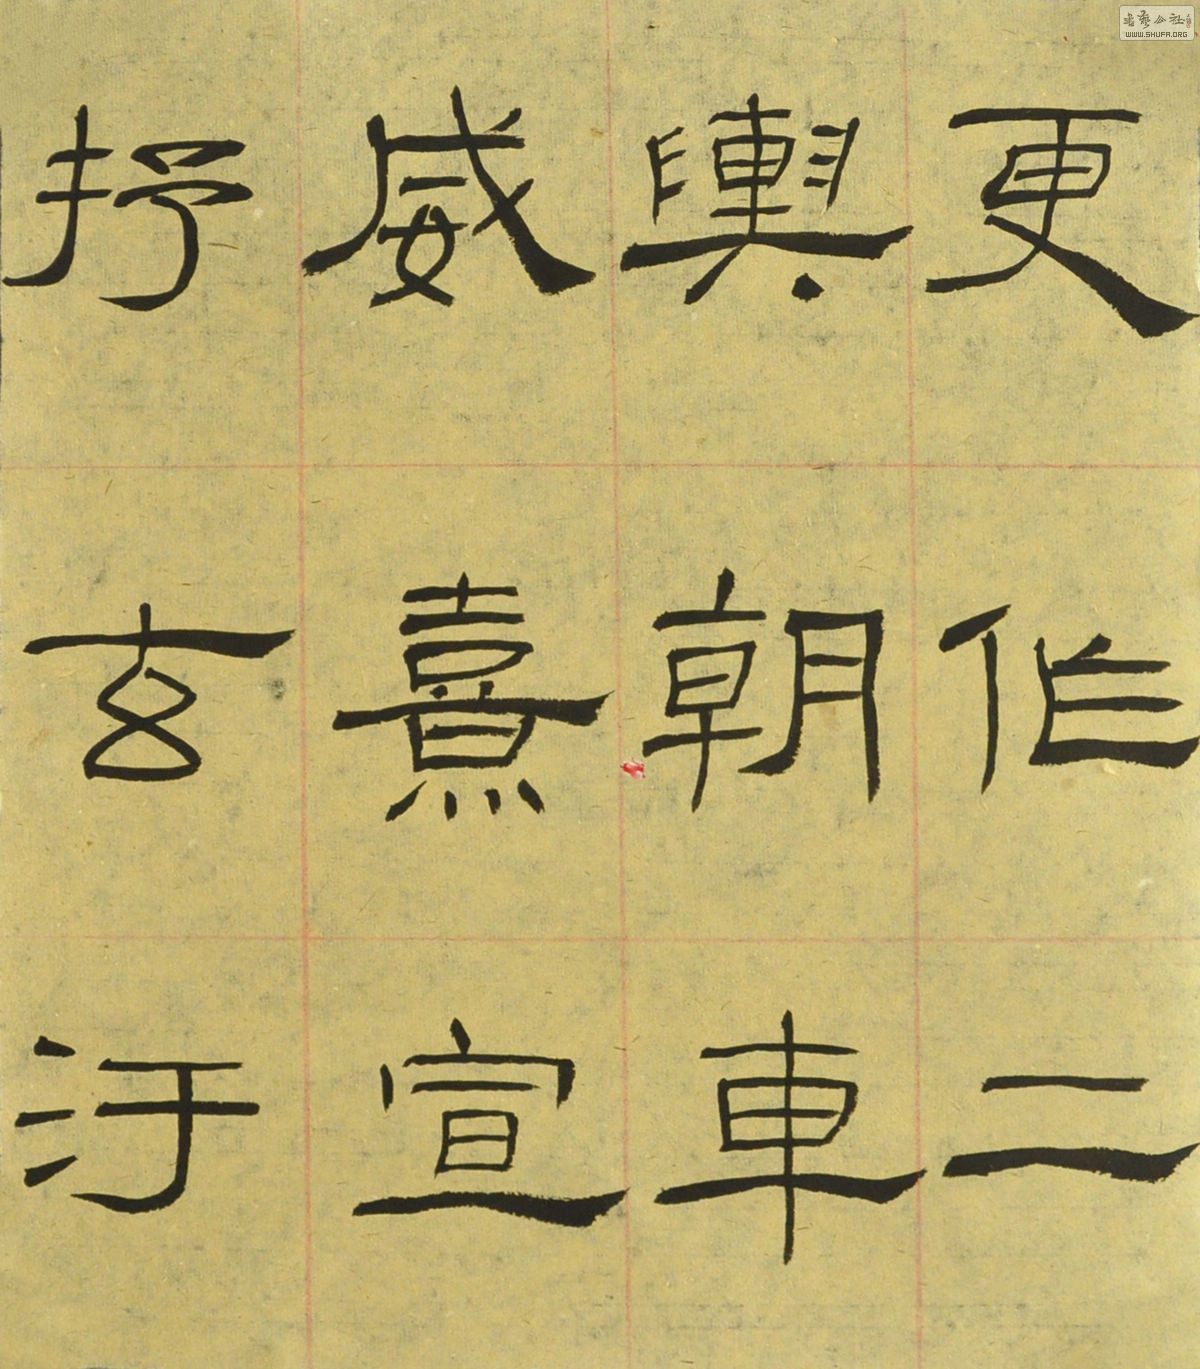 更作二
輿朝車
威熹宣
抒玄汙
書藝公社
WWW.SHUFA.ORG